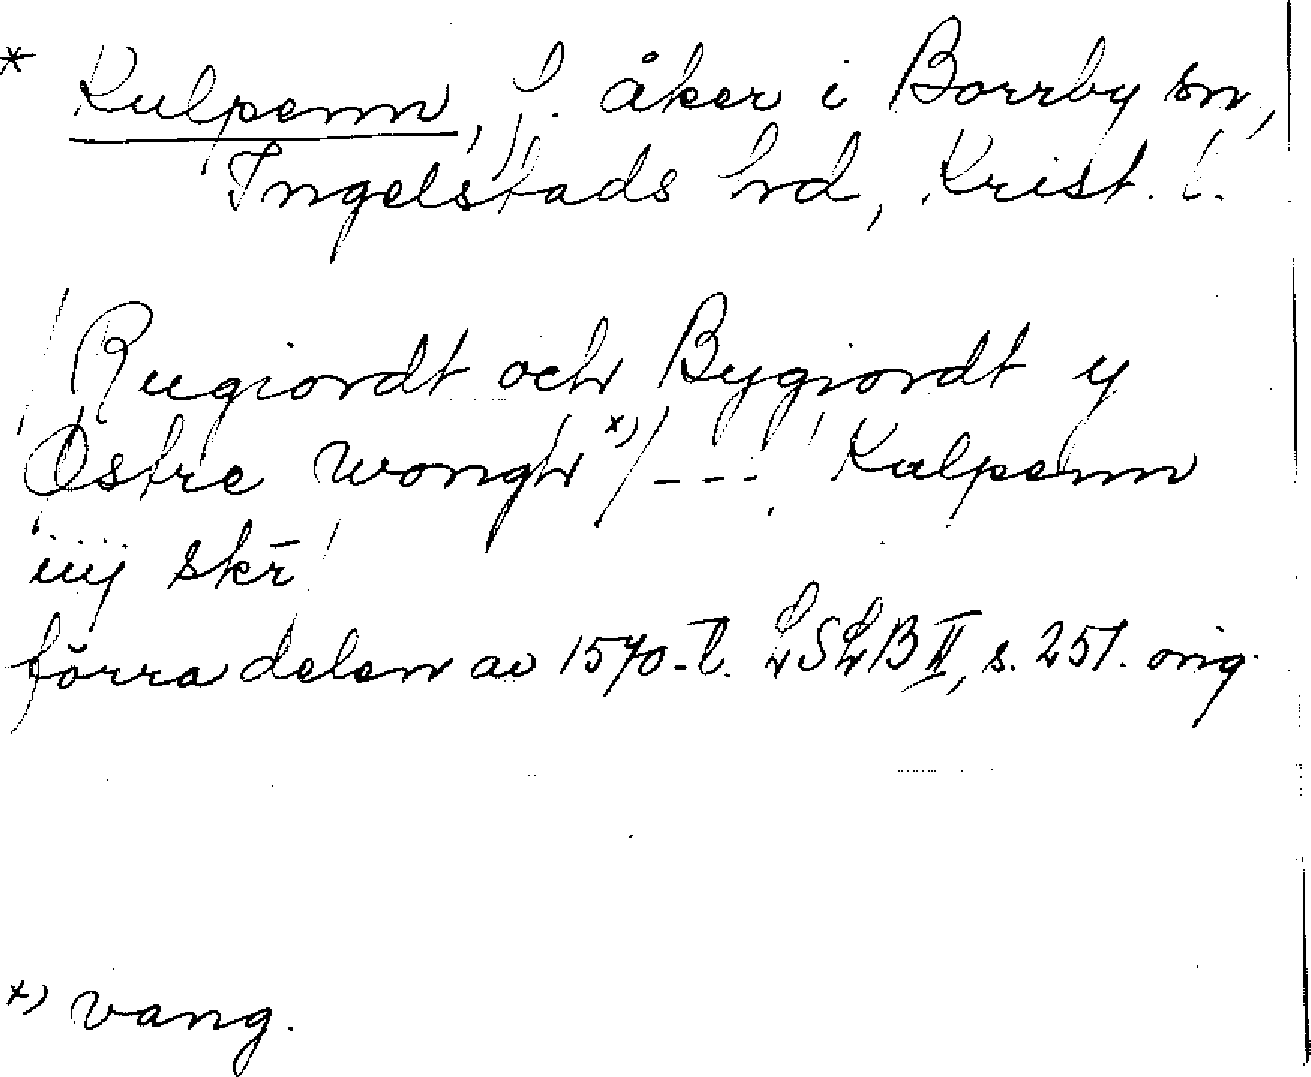 * Kulpenn, f. åker i Borrby sn,
Ingelstads hd, Krist. l.
/Rugiordt och Bygiordt y
Østre wongh *)/---/ Kulpenn
iiij skr̄/
förra delen av 1570-t. LSLB II, s. 251. orig.
*) vang.